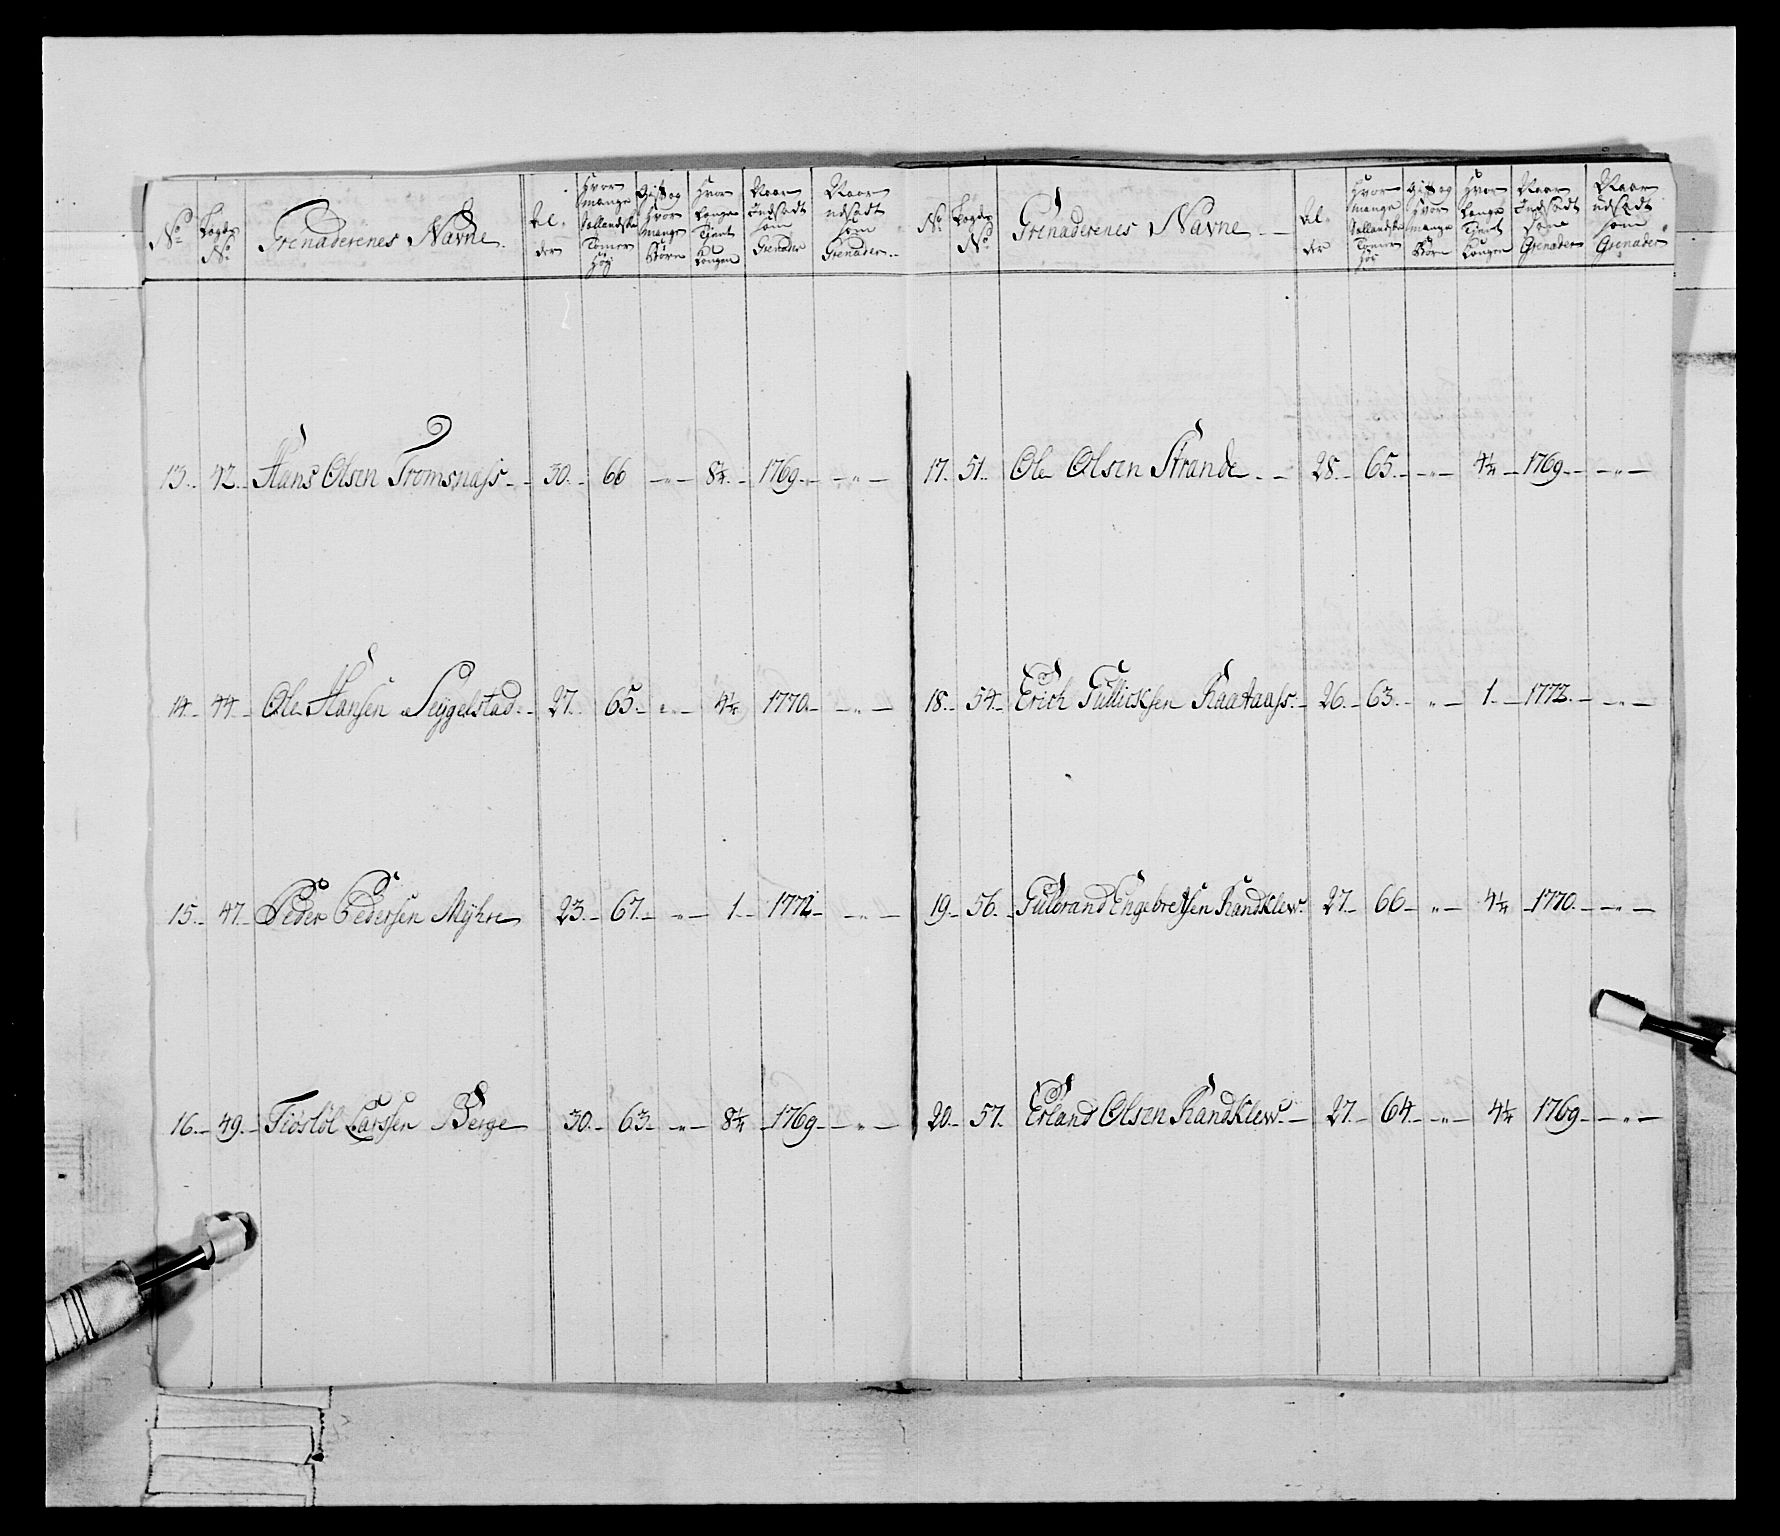 No Lægds No Grenaderenes Navne. Al- der Hvor mange Hollandske Tomer høj Gift og Hvor mange Børn Hvor Længe Tient Kongen Naar Indsadt som Grenader Naar udsadt som Grenader
13. 42. Hans Olsen Tromsnass 30. 66 — " — 8 1/4 1769. — " —
14. 44. Ole Hansen Seygelstad. 27. 65. — " — 4 1/4 1770. — " —
15. 47. Peder Pedersen Myhre 23. 67. — " — 1. 1772. — " —
16. 49. Tiøsløl Larssen Berge 30. 63. — " — 8 1/4 1769. — " —
No Lægds No Grenaderenes Navne Al- der Hvor mange Hollandske Tomer høj Gift og Hvor mange Børn Hvor Længe Tient Kongen Naar Indsadt som Grenader Naar udsadt som Grenader
17. 51. Ole Olsen Strande 28. 65. — " — 4 1/4 1769. — " —
18. 54. Erich Gullicksen Raaaaass. 26. 63. — " — 1. 1772. — " —
19. 56. Gulbrand Engebretsen Randklew. 27. 66. — " — 4 1/4 1770. — " —
20. 57. Erland Olsen Randklew. 27. 64. — " — 4 1/4 1769. — " —